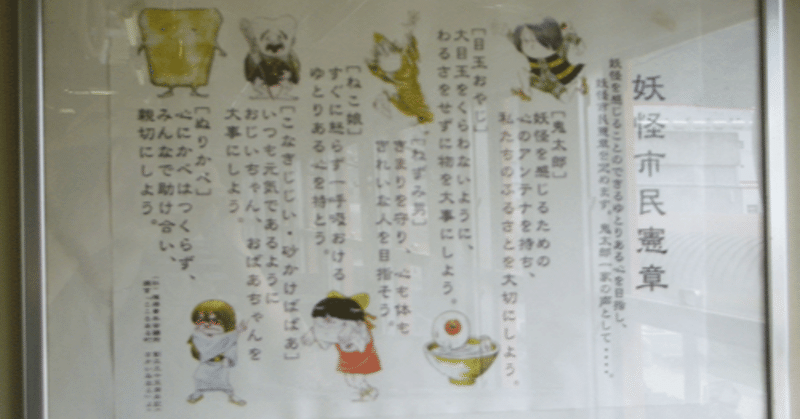 妖怪市民憲章
妖怪を感じることのできるゆとりある心を目指し、
妖怪市民憲章を定めます。鬼太郎一家の声として・・・・。
[鬼太郎]
妖怪を感じるための
心のアンテナを持ち、
私たちのふるさとを大切にしよう。
[目玉おやじ]
大目玉をくらわないように、
わるさをせずに物を大事にしよう。
[ねずみ男]
きまりを守り、心も体も
きれいな人を目指そう。
[ねこ娘]
すぐに怒らず一呼吸おける
ゆとりある心を持とう。
[こなきじじい・砂かけばばあ]
いつも元気であるように
おじいちゃん、おばあちゃんを
大事にしよう。
[ぬりかべ]
心にかべはつくらず、
みんなで助け合い、
親切にしよう。